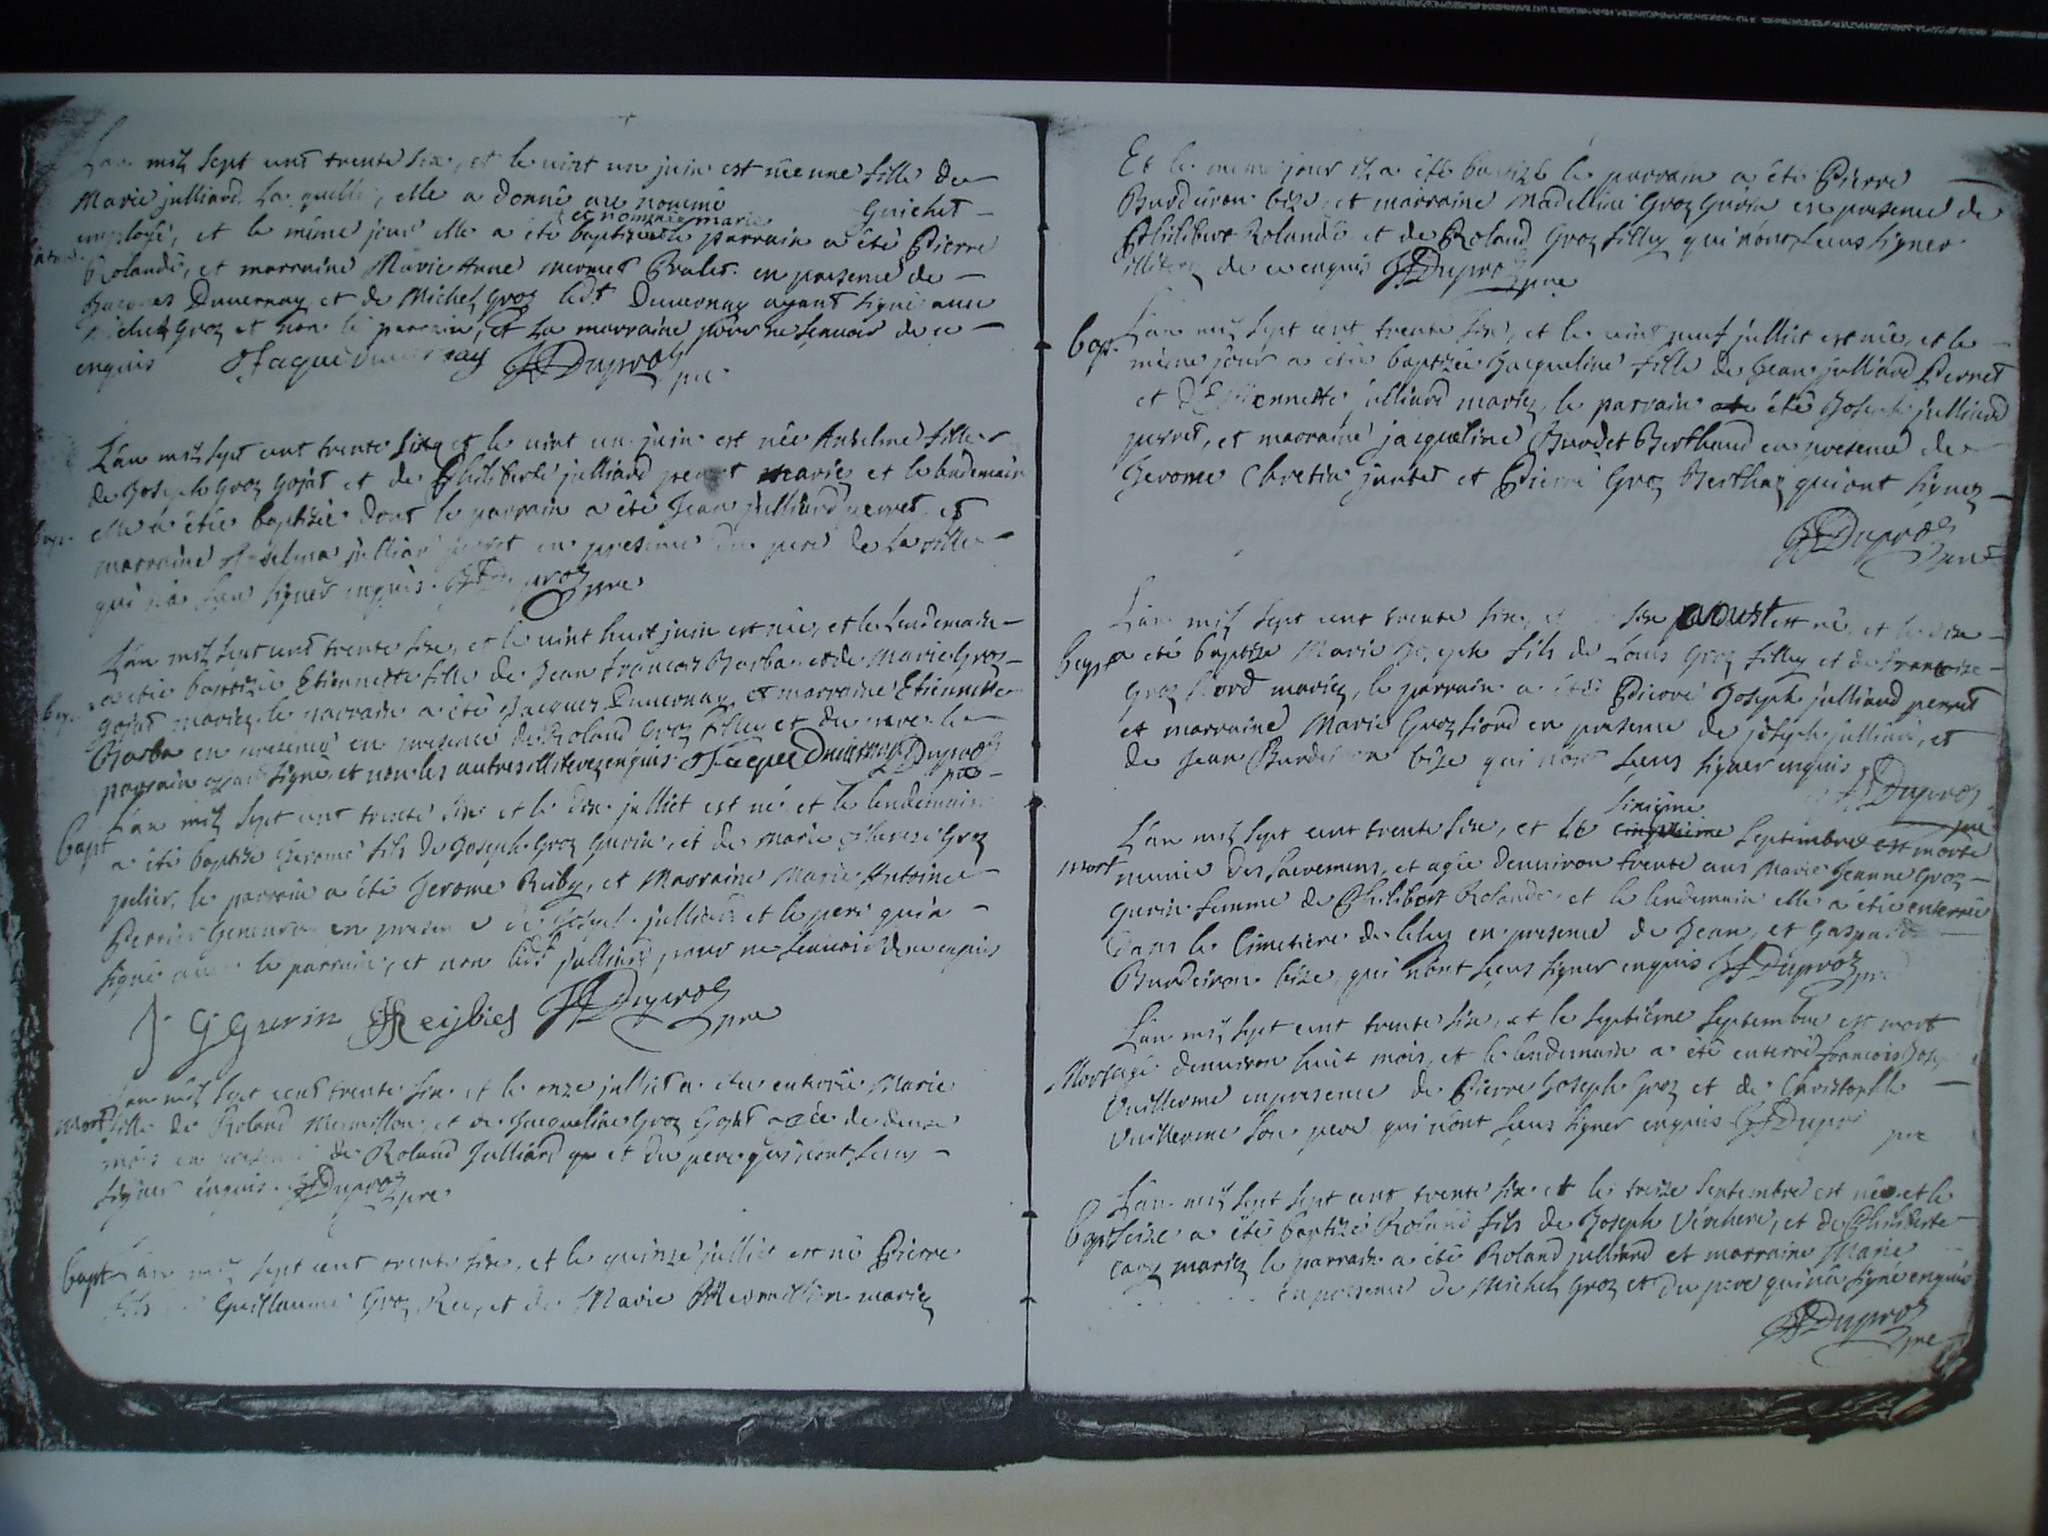 L'an mil sept cent trente six, et le vint un juin est nee une fille de
Marie julliard la quelle, elle a donné au nommé Guichet
employé, et le même jour elle a été baptizée et nommée marie le parrain a été Pierre
Rolande, et marraine Marie Anne mermet en presence de
Jacques Duvernay et de Michel Groz led.t Duvernay ayant signé avec
Michel Groz et non le parrain, et la marraine pour ne sçavoir de ce
enquis Jaque Duvernay Duproz pre
L'an mil sept cent trente six et le vint un juin est née Anselme fille
de Joseph Groz Gojat et de Philiberte julliard perret mariez et le lendemain
bapt. elle a étée baptisée dont le parrain a été Jean julliard perret, et
marraine Anselma julliard perret en presence du pere de la fille
qui n'a sceu signer enquis. Duproz pre
L'an mil sept cent trente six, et le vint huit juin est née, et le lendemain
bapt. a étée baptizée Etiennette fille de Jean francois Barba et de Marie Groz
gojat mariez le parrain a été Jacques Duvernay et marraine Etiennette
Barba en presence en presence de Roland Groz filley et du pere le
parrain ayant signé et non les autres illiterez enquis. Jaque Duvernay Duproz
pre
bapt L'an mil sept cent trente six et le dix julliet est né et le lendemain
a été baptize Jerome fils de Joseph Groz Guerin, et de Marie Therese Groz
pelier, le parrain a été Jerome Reiby, et Marraine Marie Antoine
en presence de Joseph julliard et le pere qui a
signé avec le parrain, et non led.t julliard pour ne sçavoir de ce enquis
J G Guerin Reijbies Duproz pre
L'an mil sept cent trente six et le onze julliet a étée enterrée Marie
mort fille de Roland Mermillon et de Jacqueline Groz Gojat agée de deux
mois en presence de Roland Julliard et du pere qui n'ont sceus
signer enquis. Duproz pre
bapt L'an mil sept cent trente six, et le quinze julliet est né Pierre
fils de Guillaume Groz Rey, et de Marie Mermillion mariez
Et le meme jour il a été baptizé le parrain a été Pierre
Burdeiron bize, et marraine Madelline Groz Guerin en presence de
Philibert Rolande et de Roland Groz filley qui n'ont sceus signer
illiterez de ce enquis Duproz pre
bap. L'an mil sept cent trente six, et le vint neuf julliet est née, et le
même jour a étée baptizée Jacqueline fille de Jean julliard Perret
et d'Etiennette julliard mariez, le parrain a été Joseph julliard
perret, et marraine jacqueline Burdet Berthaud en presence de
Jerome Chretin juntet et Pierre Groz Berthaz qui ont signez
Duproz
pre
L'an mil sept cent trente six, et six aoust est né, et le dix
bapt a été baptize Marie Joseph fils de Louis Groz filley et de francoise
Groz fiord mariez, le parrain a été Pierre Joseph julliard perret
et marraine Marie Groz fiord en presence de joseph julliard, et
de Jean Burdeiron bize qui n'ont sceus signer enquis Duproz
pre
L'an mil sept cent trente six, et le cinquième sixième septembre est morte
mort munie des sacremens, et agée d'environ trente ans Marie Jeanne Groz
Guerin femme de Philibert Rolande et le lendemain elle a étée enterrée
Dans le Cimetiere de lelex en presence de Jean, et Gaspard
Burdeiron bize, qui n'ont sceus signer enquis Duproz pre
L'an mil sept cent trente six, et le septième septembre est mort
Mort agé d'environ huit mois, et le lendemain a été enterré francois Joseph
Vuillerme en presence de Pierre Joseph Groz et de Christophle
Vuillerme son pere qui n'ont sceus signer enquis Duproz pre
L'an mil sept sept cent trente six et le treize septembre est né et le
bapt seize a été baptizé Roland fils de Joseph Verchere, et de Philiberte
mariez le parrain a été Roland julliard et marraine Marie
en presence de Michel Groz et du pere qui n'a signé enquis
Duproz
pre